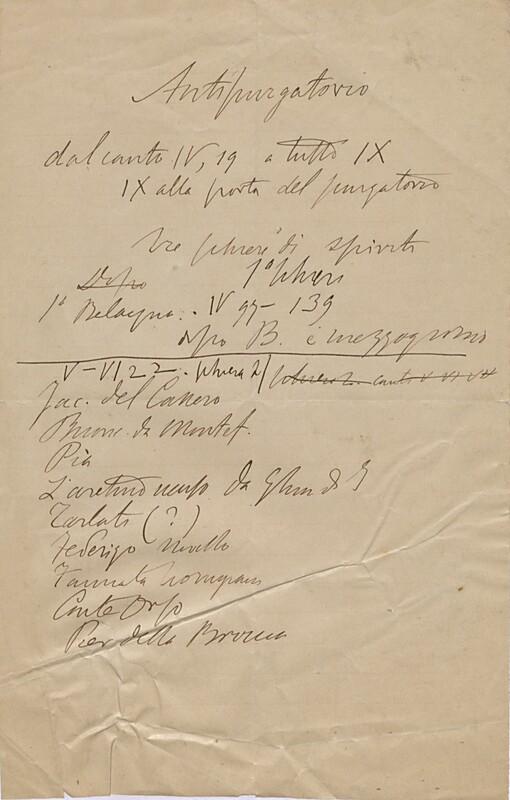 Antipurgatorio
dal canto IV, 19 a tutto IX
IX alla porta del purgatorio
tre schiere di spiriti
Dopo 1ª schiera
1º Belacqua. IV 97 - 139
dopo B. è mezzogiorno
V - VI 22. schiera 2ª schiera 2. canti V VI VII
Jac. del Cassero
Buonc. da Montef.
Pia
L'aretino ucciso da Ghin di T
Tarlati (?)
Federigo Novello
Conte Orso
Pier della Broccia